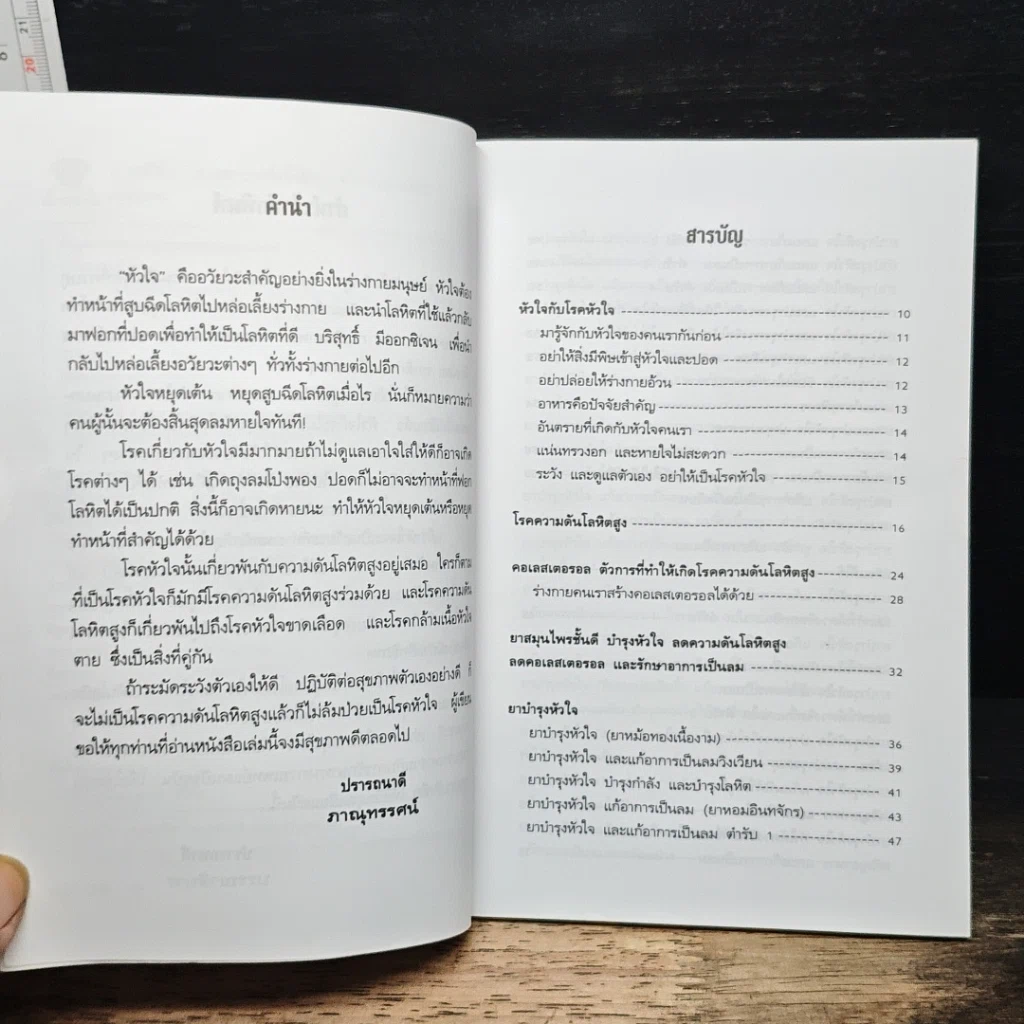 21
20
คำนำ
"หัวใจ" คืออวัยวะสำคัญอย่างยิ่งในร่างกายมนุษย์ หัวใจต้อง
ทำหน้าที่สูบฉีดโลหิตไปหล่อเลี้ยงร่างกาย และนำโลหิตที่ใช้แล้วกลับ
มาฟอกที่ปอดเพื่อทำให้เป็นโลหิตที่ดี บริสุทธิ์ มีออกซิเจน เพื่อนำ
กลับไปหล่อเลี้ยงอวัยวะต่างๆ ทั่วทั้งร่างกายต่อไปอีก
หัวใจหยุดเต้น หยุดสูบฉีดโลหิตเมื่อไร นั่นก็หมายความว่า
คนผู้นั้นจะต้องสิ้นสุดลมหายใจทันที!
โรคเกี่ยวกับหัวใจมีมากมายถ้าไม่ดูแลเอาใจใส่ให้ดีก็อาจเกิด
โรคต่างๆ ได้ เช่น เกิดถุงลมโป่งพอง ปอดก็ไม่อาจจะทำหน้าที่ฟอก
โลหิตได้เป็นปกติ สิ่งนี้ก็อาจเกิดหายนะ ทำให้หัวใจหยุดเต้นหรือหยุด
ทำหน้าที่สำคัญได้ด้วย
โรคหัวใจนั้นเกี่ยวพันกับความดันโลหิตสูงอยู่เสมอ ใครก็ตาม
ที่เป็นโรคหัวใจก็มักมีโรคความดันโลหิตสูงร่วมด้วย และโรคความดัน
โลหิตสูงก็เกี่ยวพันไปถึงโรคหัวใจขาดเลือด และโรคกล้ามเนื้อหัวใจ
ตาย ซึ่งเป็นสิ่งที่คู่กัน
ถ้าระมัดระวังตัวเองให้ดี ปฏิบัติต่อสุขภาพตัวเองอย่างดี ก็
จะไม่เป็นโรคความดันโลหิตสูงแล้วก็ไม่ล้มป่วยเป็นโรคหัวใจ ผู้เขียน
ขอให้ทุกท่านที่อ่านหนังสือเล่มนี้จงมีสุขภาพดีตลอดไป
ปรารถนาดี
ภาณุทรรศน์
สารบัญ
หัวใจกับโรคหัวใจ 10
มารู้จักกับหัวใจของคนเรากันก่อน 11
อย่าให้สิ่งมีพิษเข้าสู่หัวใจและปอด 12
อย่าปล่อยให้ร่างกายอ้วน 12
อาหารคือปัจจัยสำคัญ 13
อันตรายที่เกิดกับหัวใจคนเรา 14
แน่นทรวงอก และหายใจไม่สะดวก 14
ระวัง และดูแลตัวเอง อย่าให้เป็นโรคหัวใจ 15
โรคความดันโลหิตสูง 16
คอเลสเตอรอล ตัวการที่ทำให้เกิดโรคความดันโลหิตสูง 24
ร่างกายคนเราสร้างคอเลสเตอรอลได้ด้วย 28
ยาสมุนไพรชั้นดี บำรุงหัวใจ ลดความดันโลหิตสูง
ลดคอเลสเตอรอล และรักษาอาการเป็นลม 32
ยาบำรุงหัวใจ
ยาบำรุงหัวใจ (ยาหม้อทองเนื้องาม) 36
ยาบำรุงหัวใจ และแก้อาการเป็นลมวิงเวียน 39
ยาบำรุงหัวใจ บำรุงกำลัง และบำรุงโลหิต 41
ยาบำรุงหัวใจ แก้อาการเป็นลม (ยาหอมอินทจักร) 43
ยาบำรุงหัวใจ และแก้อาการเป็นลม ตำรับ 1 47